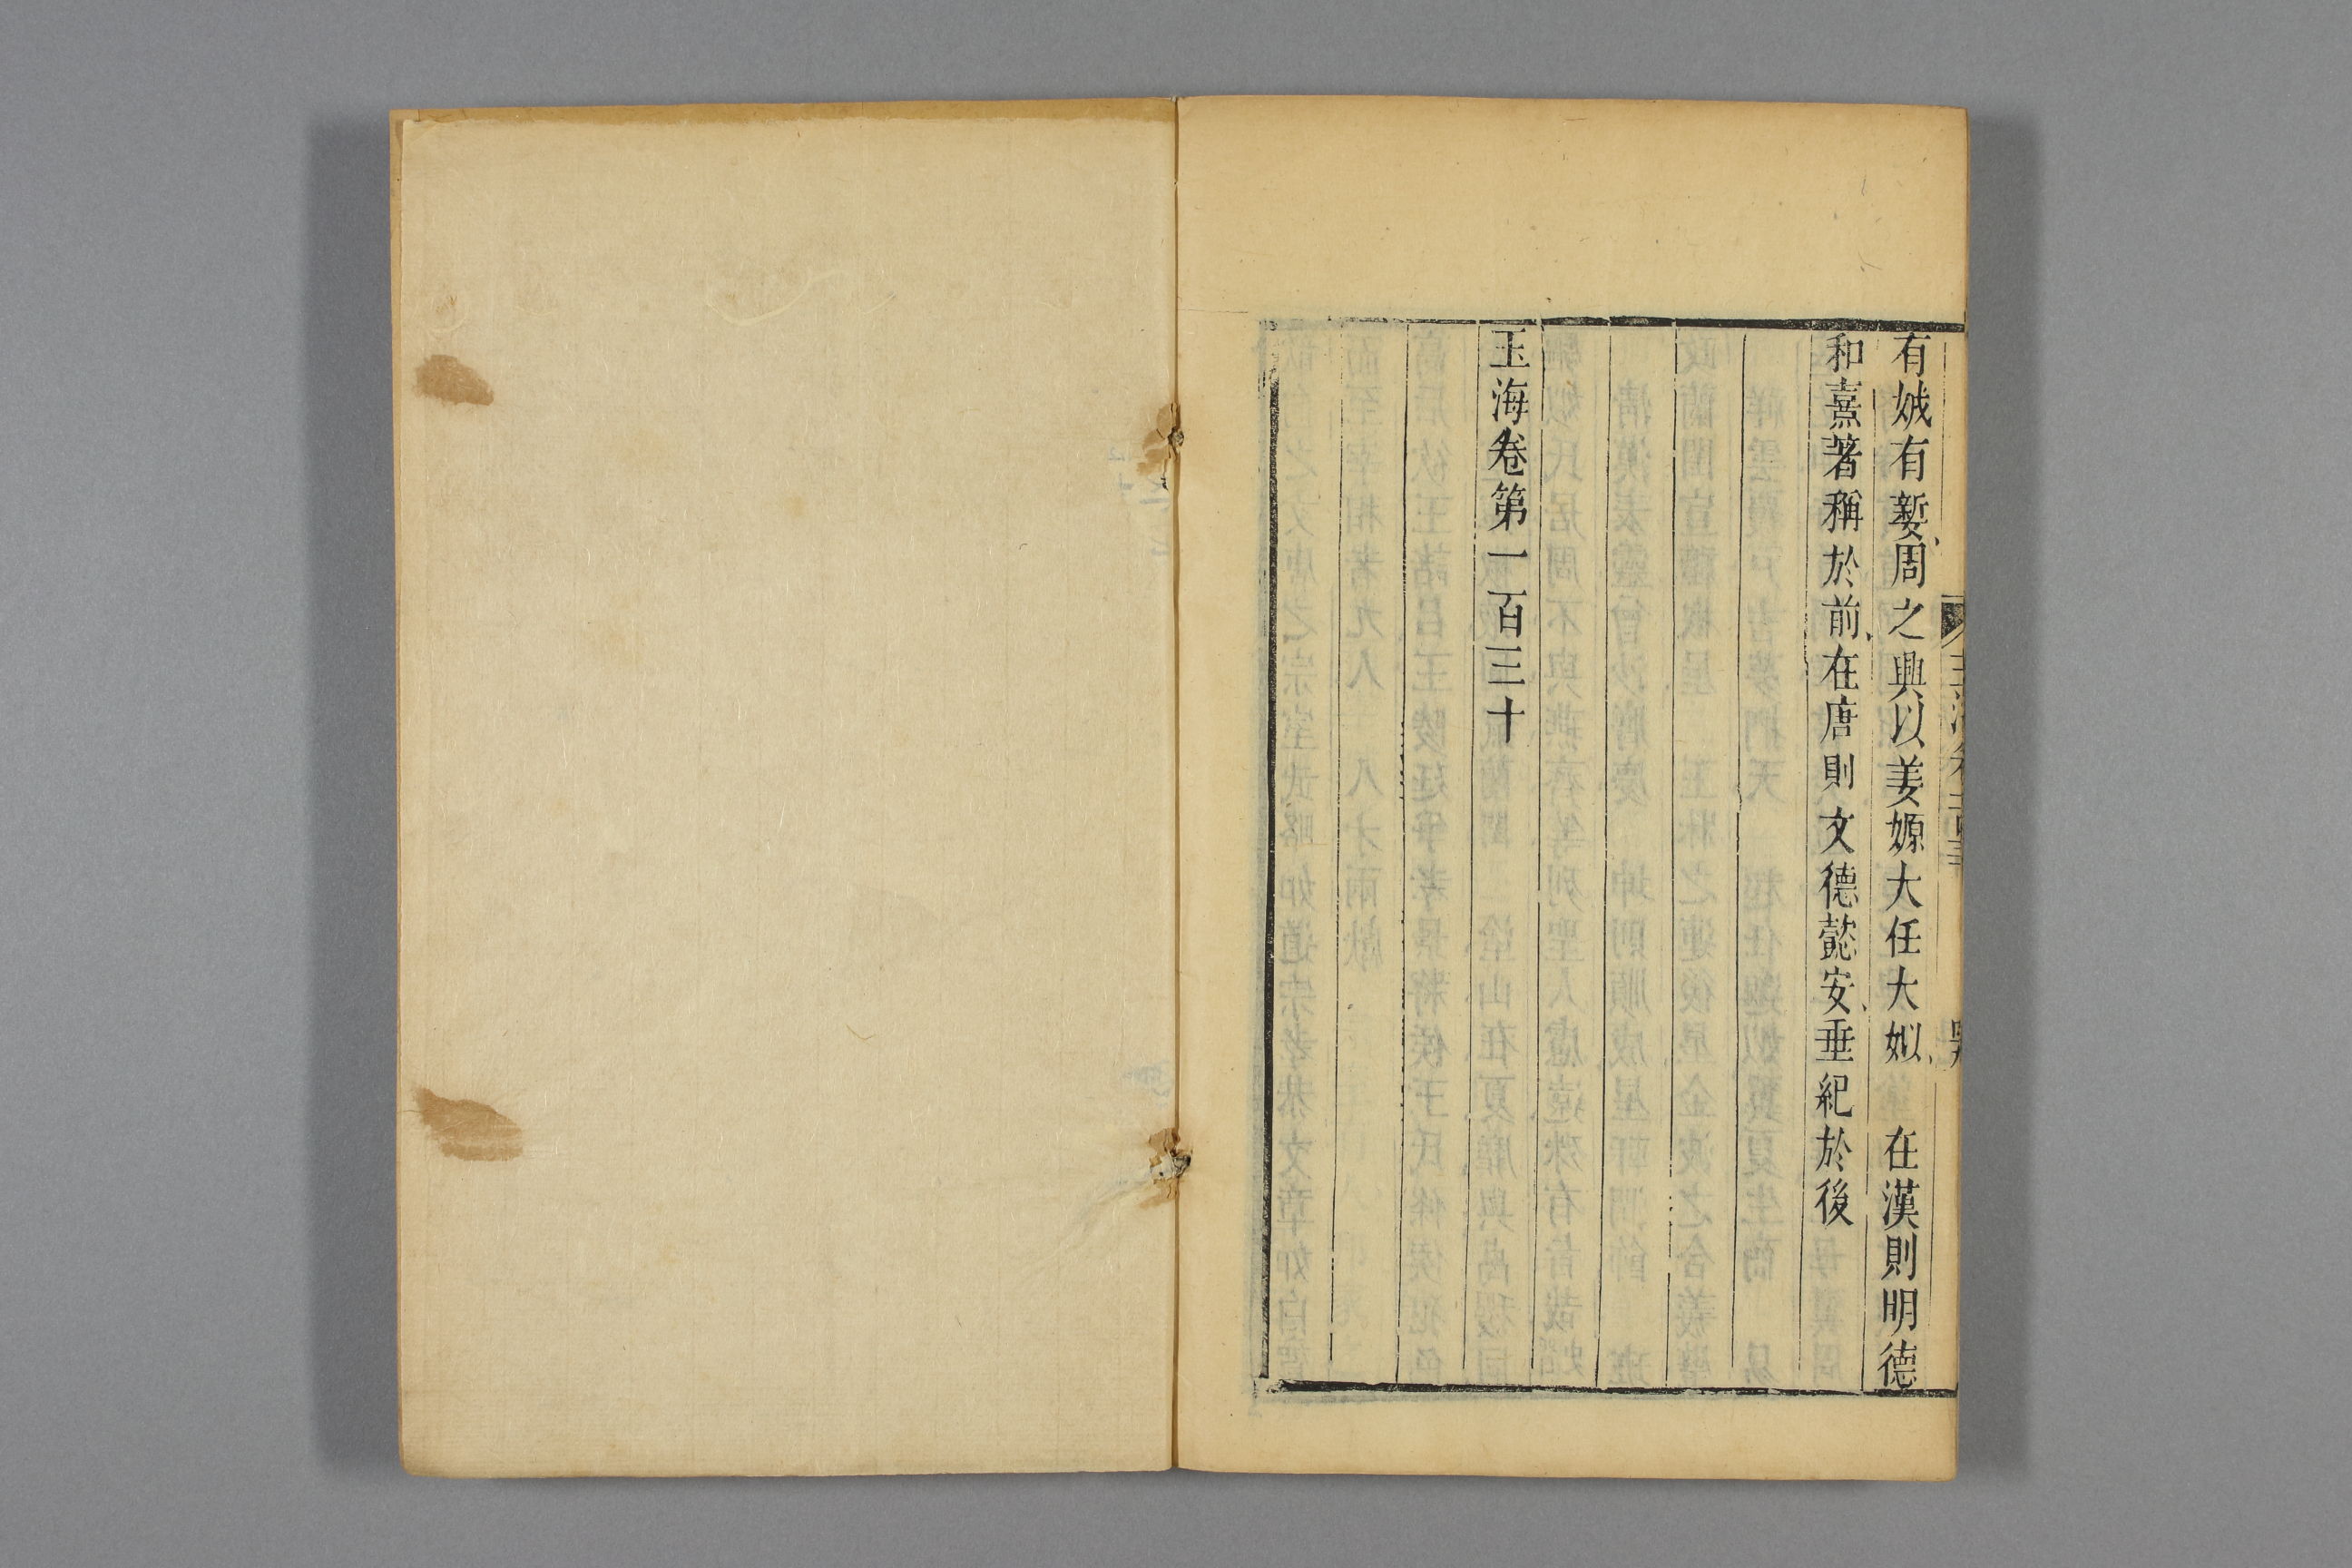 有娀有㜪周之興以姜嫄大任大姒　在漢則明德
和熹著稱於前在唐則文德懿安垂紀於後
玉海卷第一百三十